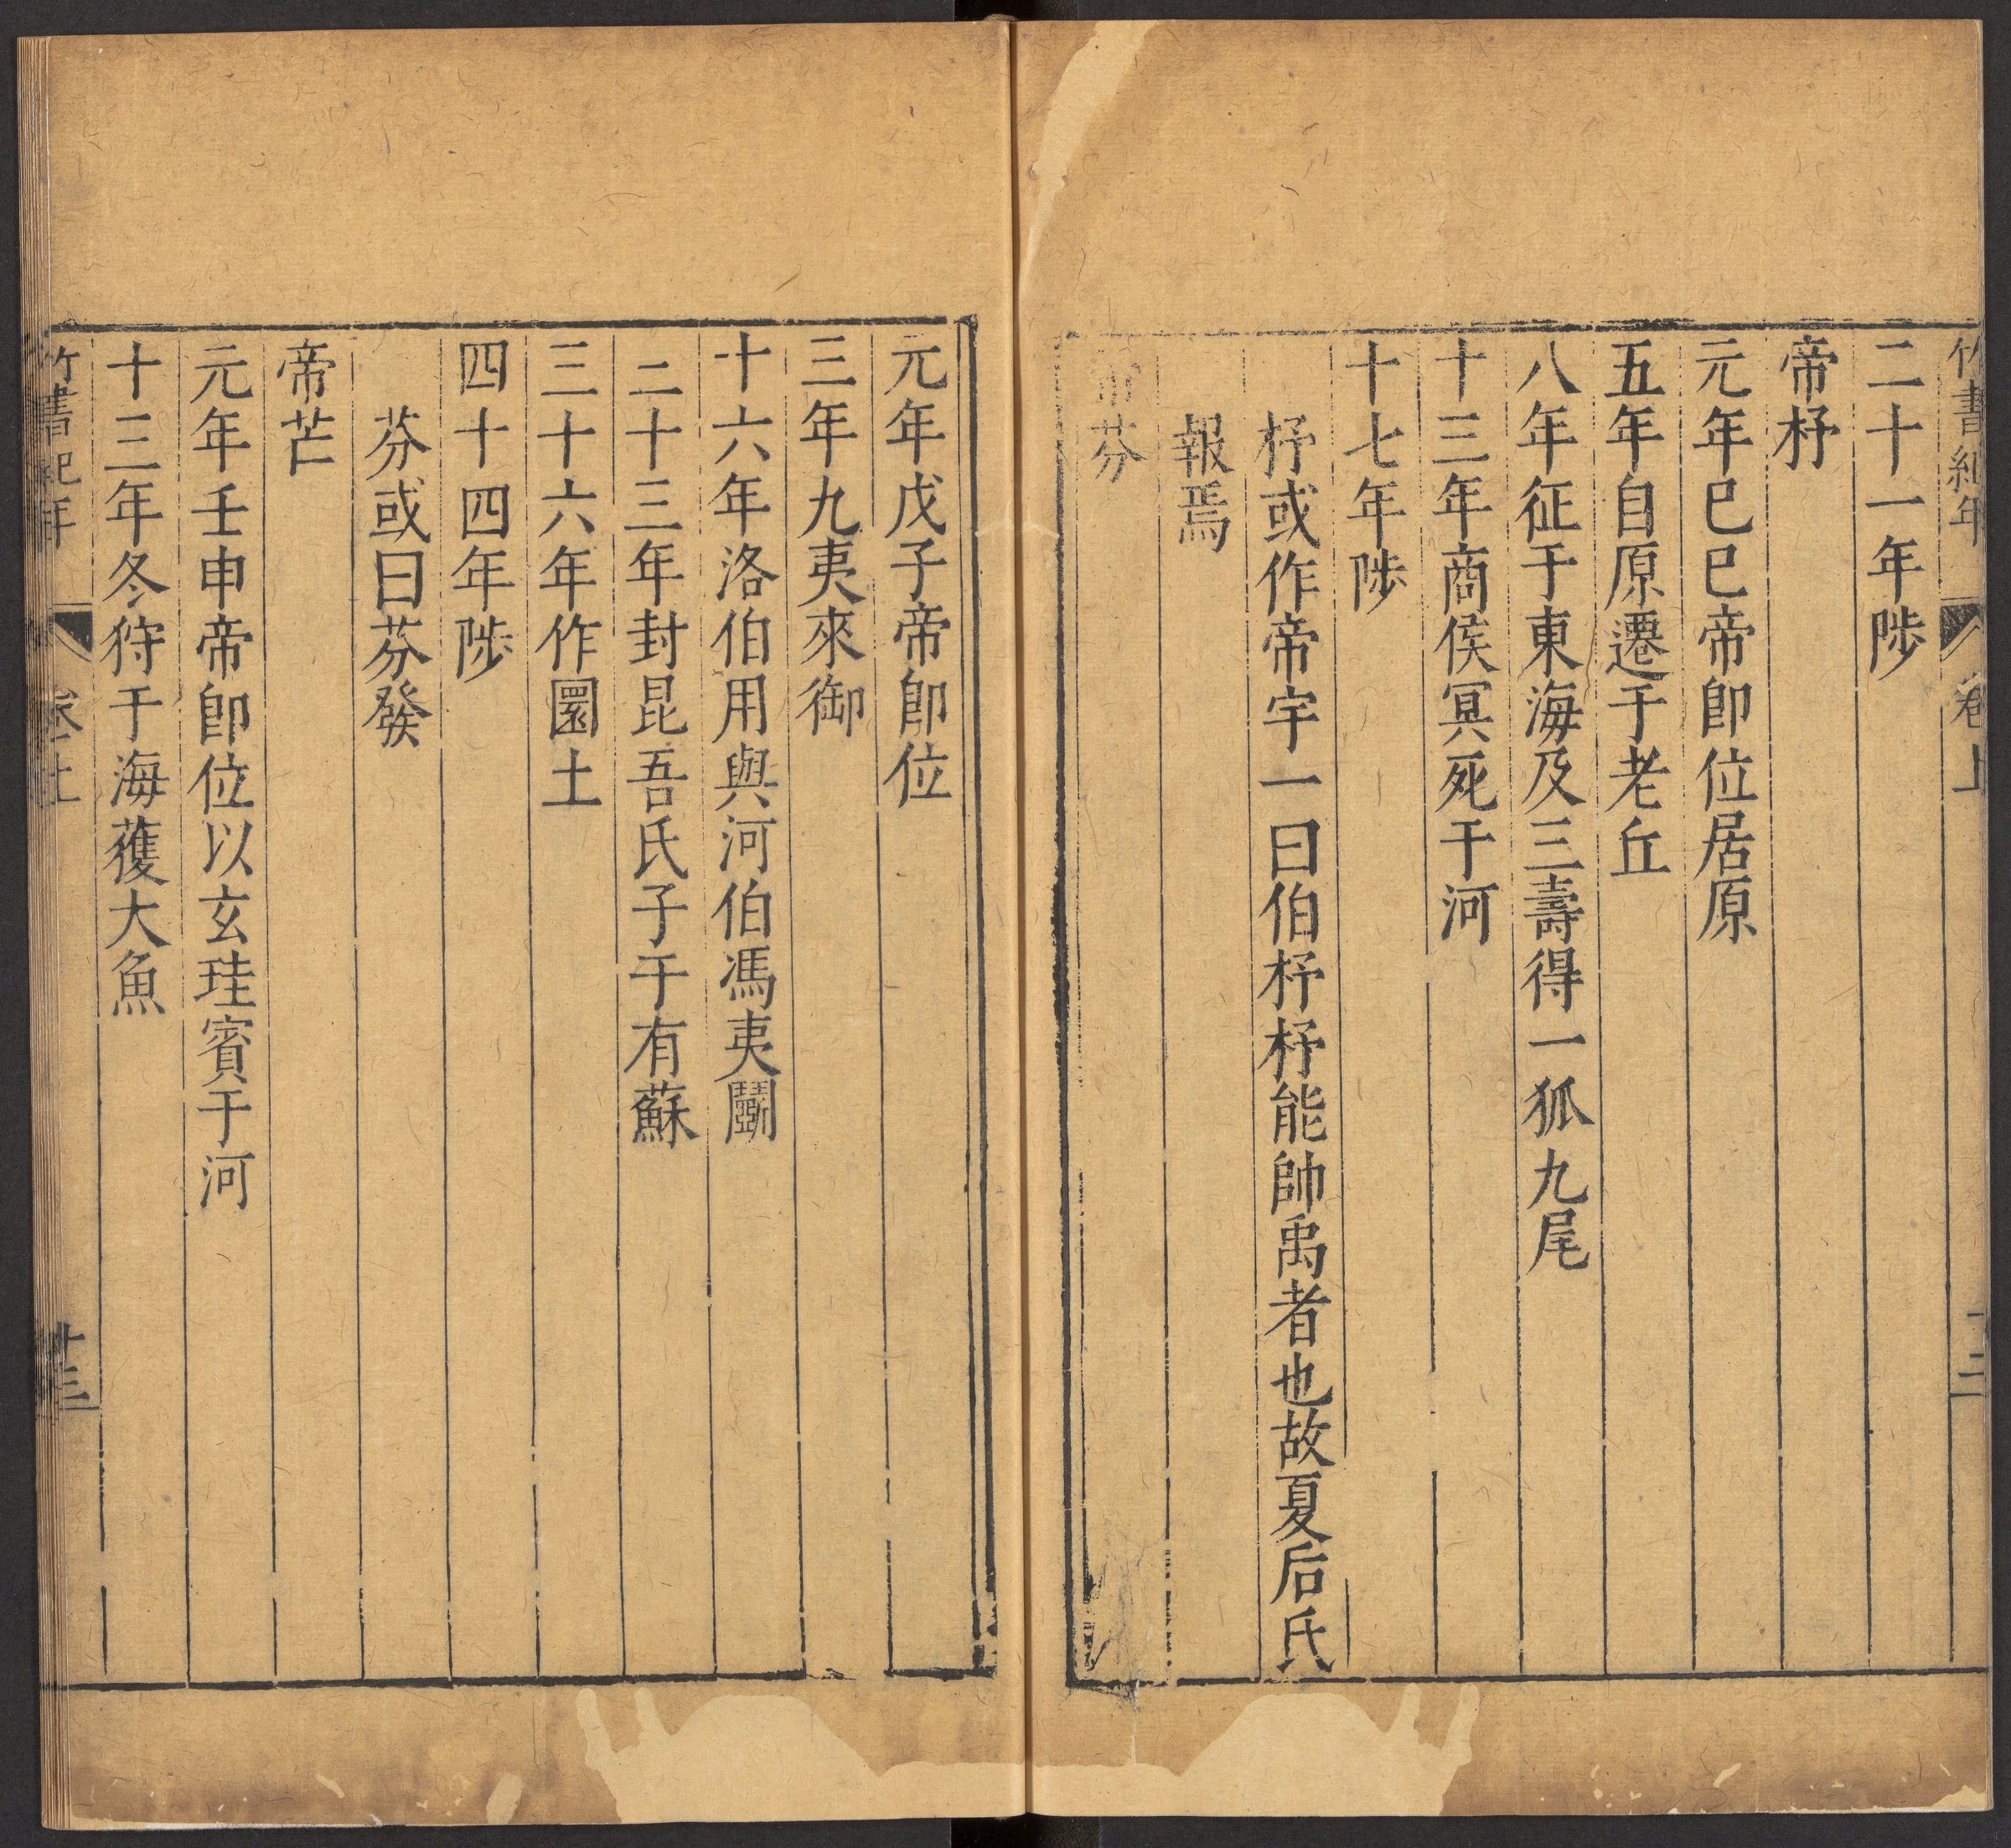 竹書紀年 卷上 十二
二十一年陟
帝杼
元年巳巳帝卽位居原
五年自原遷于老丘
八年征于東海及三壽得一狐九尾
十三年商侯冥死于河
十七年陟
杼或作帝宇一曰伯杼杼能帥禹者也故夏后氏
報焉
帝芬
元年戊子帝卽位
三年九夷來御
十六年洛伯用與河伯馮夷鬭
二十三年封昆吾氏子于有蘇
三十六年作圜土
四十四年陟
芬或曰芬發
帝芒
元年壬申帝卽位以玄珪賓于河
十三年冬狩于海獲大魚
竹書紀年 卷上 十三